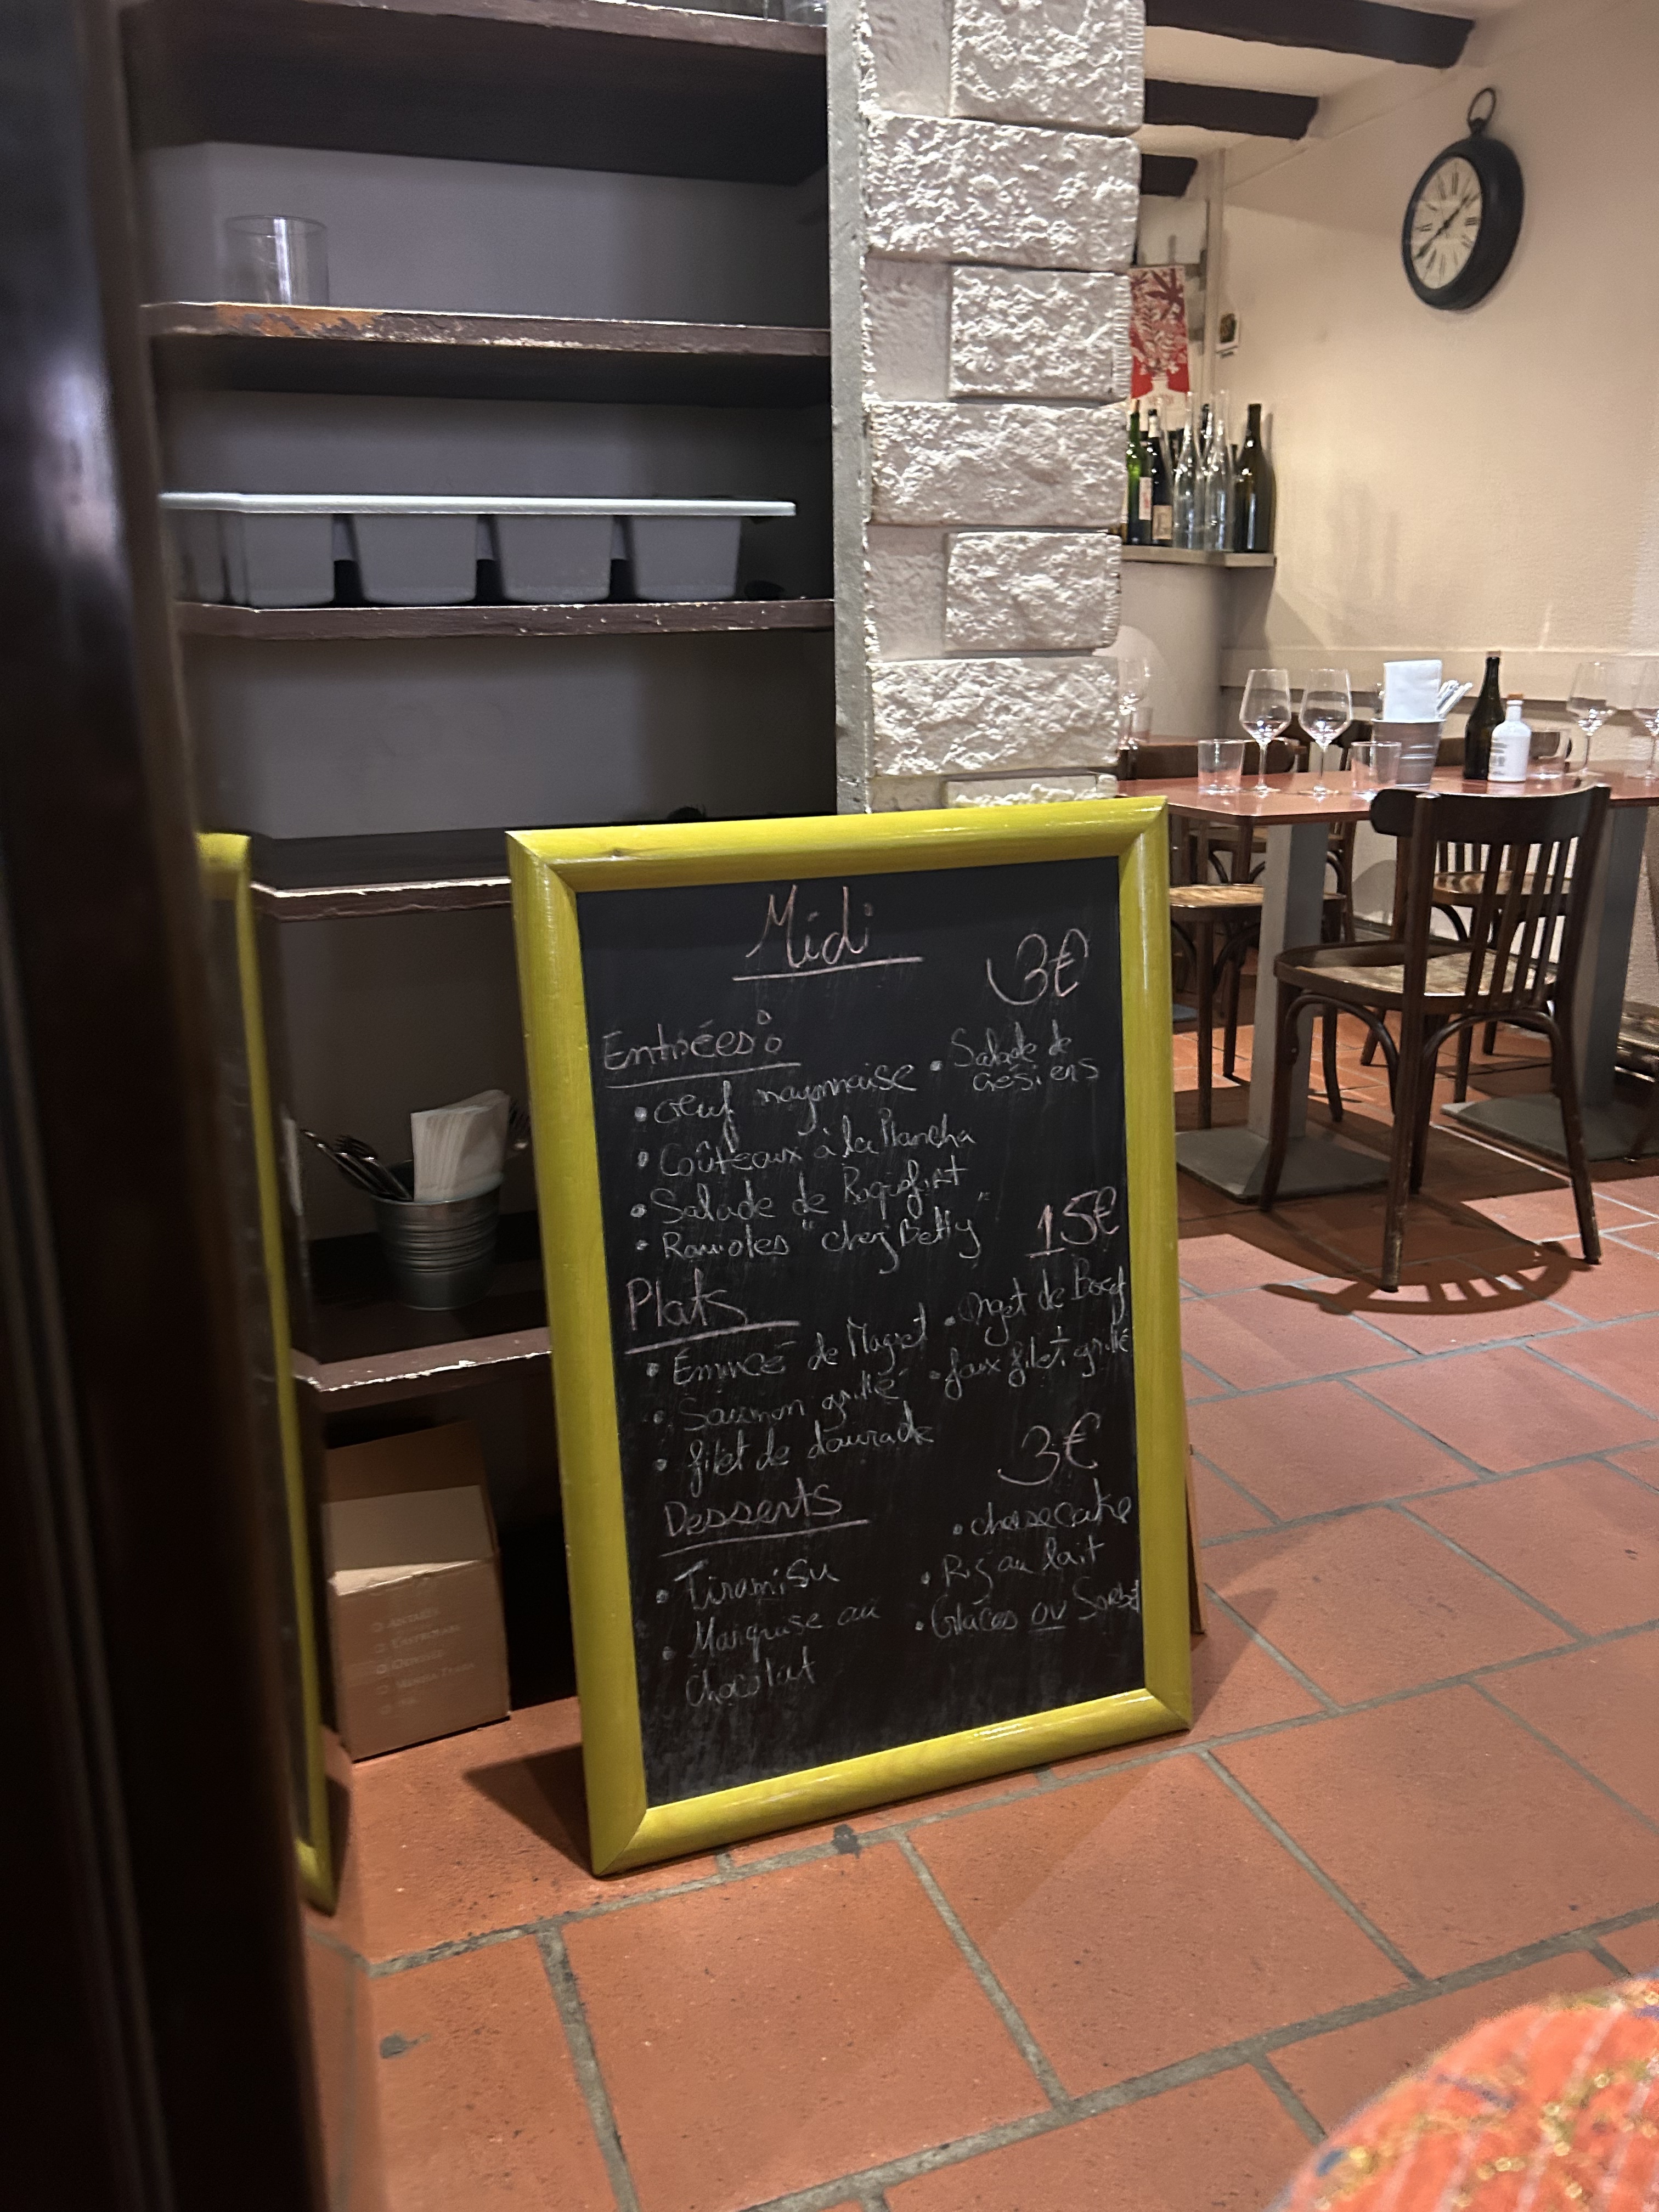 Midi
3€
Entrées:
• Oeuf mayonnaise
• Salade de
Gésiers
• Coûteaux à la Plancha
• Salade de Roquefort
• Ravioles "chez Betty"
15€
Plats
• Émincé de Magret
• Onget de Boeuf
• Saumon grillé
• faux filet grillé
• filet de daurade
3€
Desserts
• Tiramisu
• cheesecake
• Marquise au
chocolat
• Riz au lait
• Glaces ou Sorbet